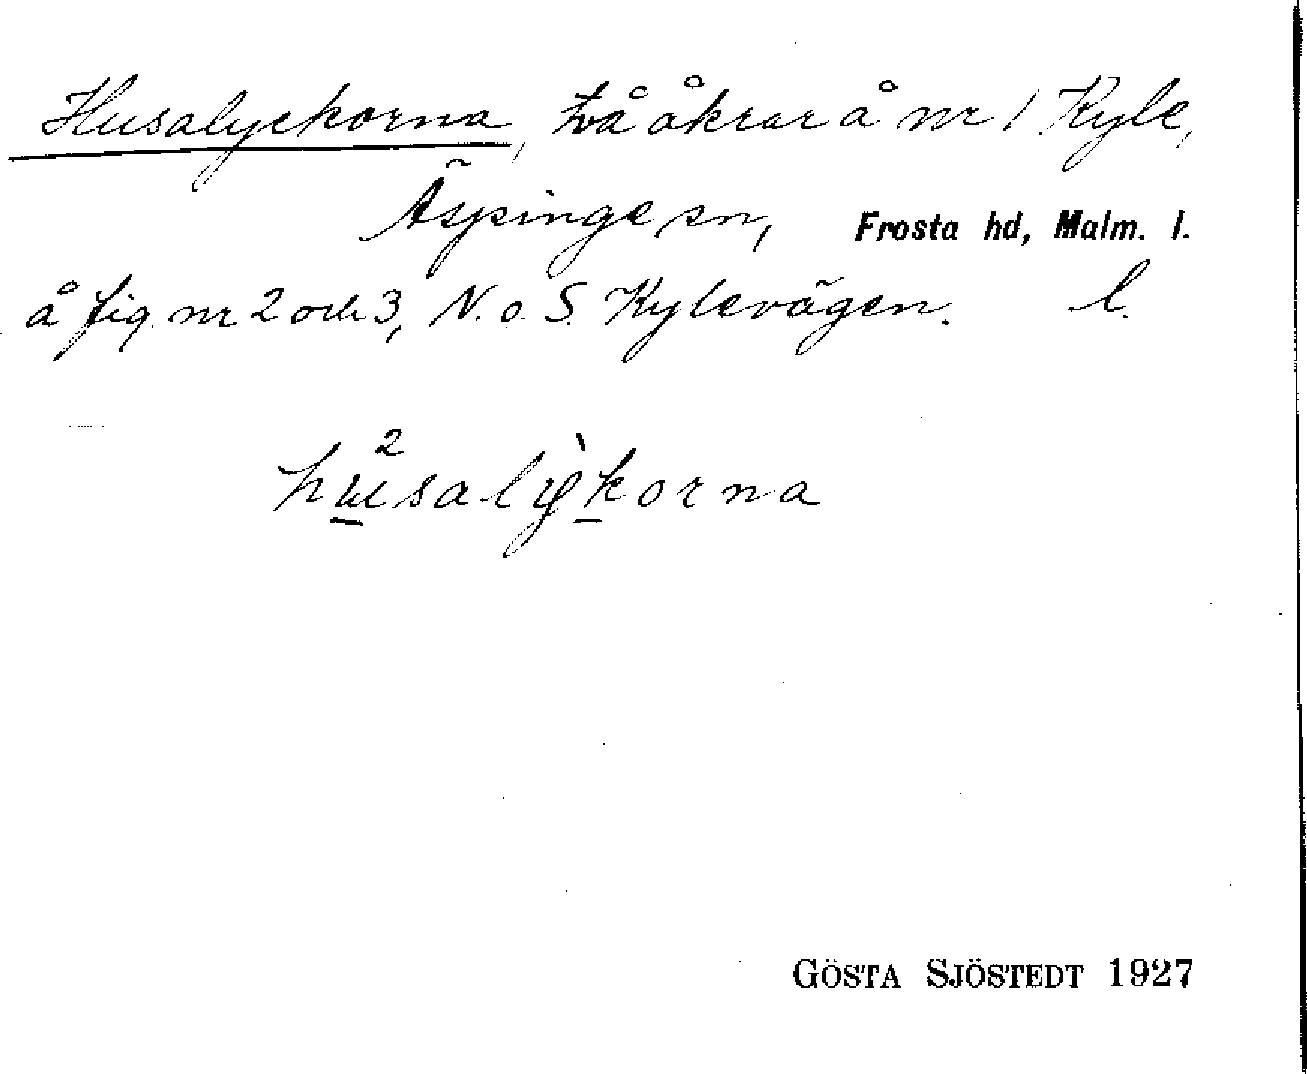 Husalyckorna, två åkrar å nr 1 Kyle,
Äspinge sn, Frosta hd, Malm. l.
å fig. nr 2 och 3, N. o. S. Kylevägen. l.
husalykorna
GÖSTA SJÖSTEDT 1927